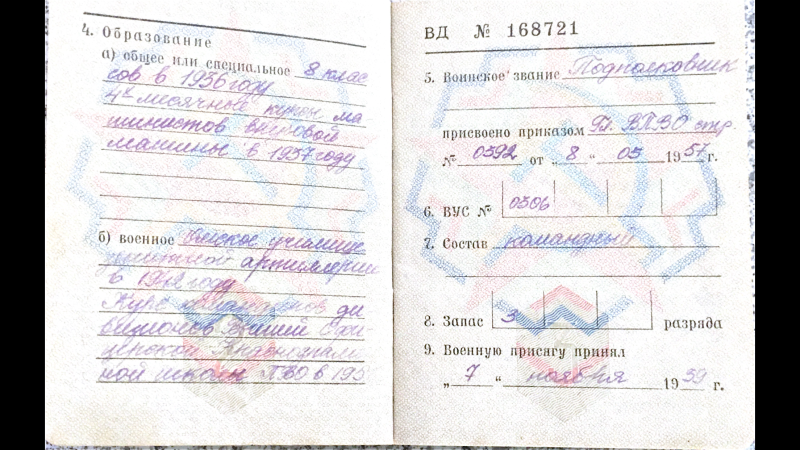 4. Образование
а) общее или специальное 8 клас-
сов в 1936 году
4х месячные курсы ма-
шинистов
машины в 1937 году
б) военное Омское училище
артиллерии
в 1942 году
Курс ди-
визионов Высшей Офи-
церской
ной школы ПВО в 195
ВД № 168721
5. Воинское звание Подполковник
присвоено приказом Гл. ВПВО стр.
№ 0592 от „ 8 " 05 1957 г.
6. ВУС № 0306
7. Состав командный
8. Запас 3 разряда
9. Военную присягу принял
„ 7 " ноября 1939 г.